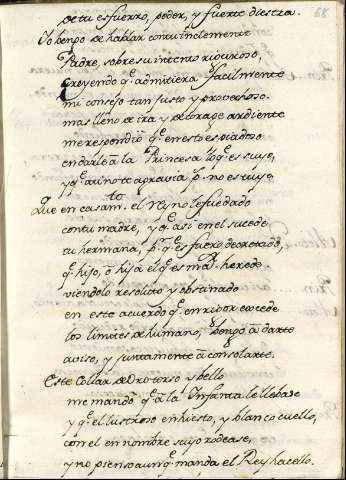 68
de tu esfuerzo, poder, y fuerte diestra.
Yo vengo de hablar continclemente
Padre, sobre su intento riguroso,
creyendo q̃ admitiera facilmente
mi consejo tan justo y provechoso.
mas lleno de ira y de corage ardiente
me respondió q̃ en esto es piadoso
en darle a la Princesa lo q̃ es suyo,
y q̃ a ti no te agravia p.s no es tuyo
Que en casam.to el reyno le fue dado
con tu madre, y q̃ asi en el sucede
tu hermana, p.r q̃ es fuero decretado,
q̃ hijo, ò hija el q̃ es ma.r herede.
viendolo resoluto y obstinado
en este acuerdo q̃ en rigor excede
los limites de humano, vengo à darte
aviso, y juntamente à consolarte.
Este Collar de Oro terso y bello
me mandò q̃ a la Infanta le llevase
y q̃ el lustroso enhiesto, y blanco cuello,
con el en nombre suyo rodease,
y no pienso aunq̃ manda el Rey hacello.